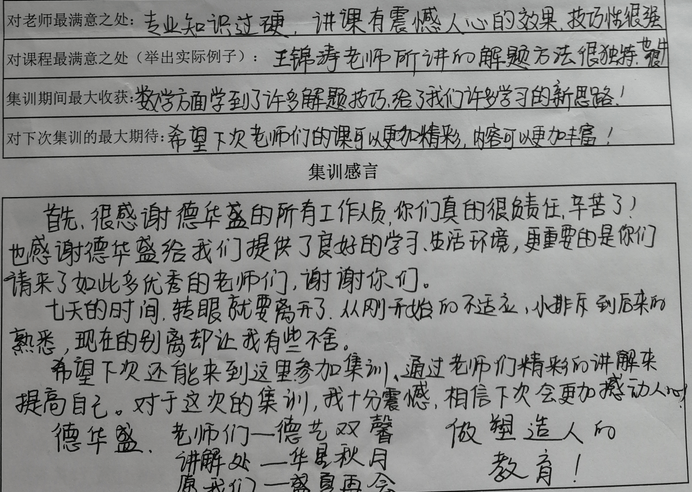 对老师最满意之处：专业知识过硬，讲课有震憾人心的效果，技巧性很强
对课程最满意之处（举出实际例子）：王锦涛老师所讲的解题方法很独特，
集训期间最大收获：数学方面学到了许多解题技巧，给了我们许多学习的新思路！
对下次集训的最大期待：希望下次老师们的课可以更加精彩，内容可以更加丰富！
集训感言
首先，很感谢德华盛的所有工作人员，你们真的很负责任，辛苦了！
也感谢德华盛给我们提供了良好的学习、生活环境，更重要的是你们
请来了如此多优秀的老师们，谢谢你们。
七天的时间，转眼就要离开了，从刚开始的不适应，小排斥到后来的
熟悉，现在的别离却让我有些不舍。
希望下次还能来到这里参加集训、通过老师们精彩的讲解来
提高自己。对于这次的集训，我十分震憾，相信下次会更加撼动人心！
德华盛、老师们—德艺双馨 做塑造人的
讲解处—华星秋月 教育！
愿我们—盛夏再会